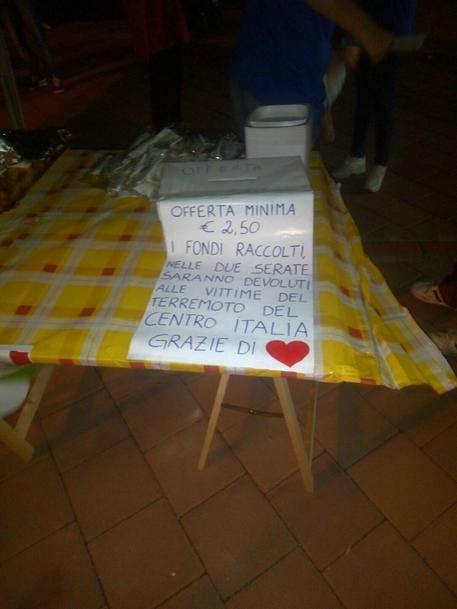 OFFERTA
OFFERTA MINIMA
€ 2,50
I FONDI RACCOLTI,
NELLE DUE SERATE
SARANNO DEVOLUTI
ALLE VITTIME DEL
TERREMOTO DEL
CENTRO ITALIA
GRAZIE DI